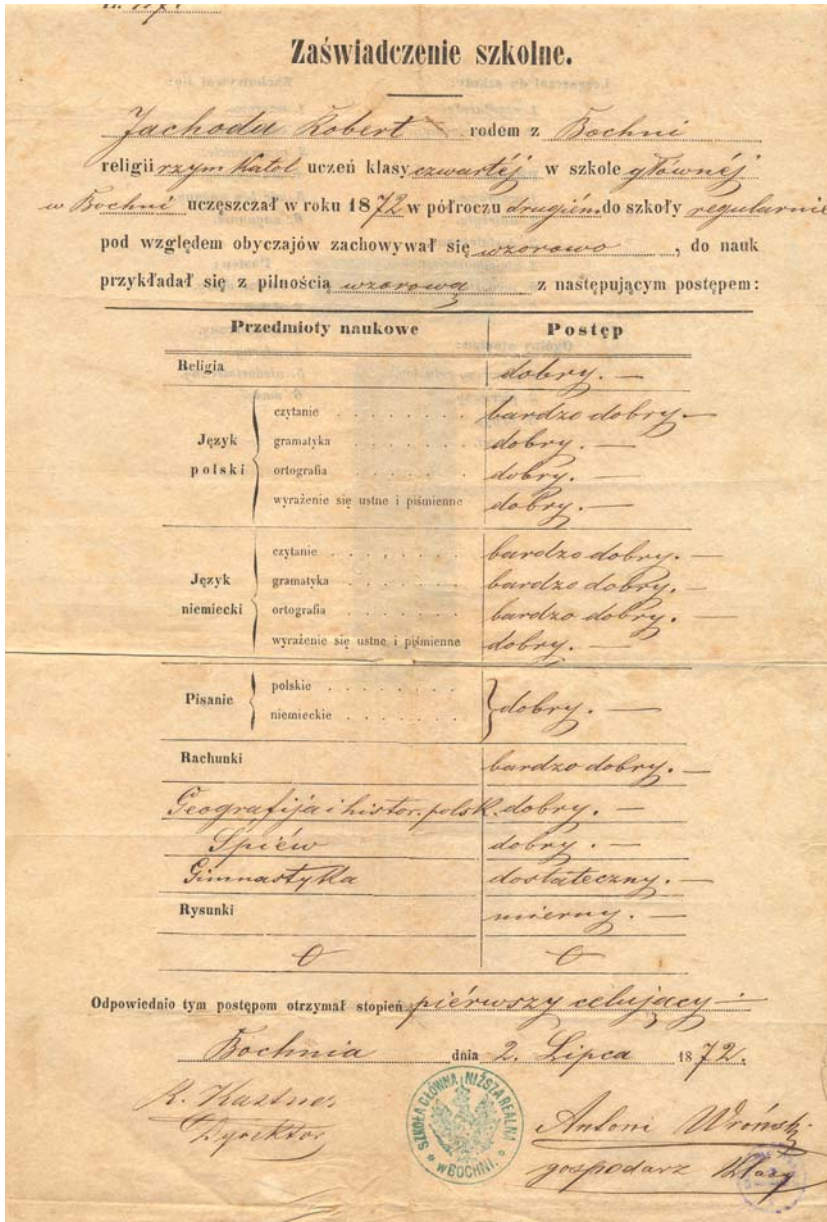 Zaświadczenie szkolne.
Jachoda Robert rodem z Bochni
religii rzym Katol uczeń klasy czwartéj w szkole głównéj
w Bochni uczęszczał w roku 1872 w półroczu drugiém do szkoły regularnie
pod względem obyczajów zachowywał się wzorowo, do nauk
przykładał się z pilnością wzorową z następującym postępem:
Przedmioty naukowe Postęp
Religia dobry. —
Język polski
czytanie . . . . . . . bardzo dobry. —
gramatyka . . . . . . . dobry. —
ortografia . . . . . . dobry. —
wyrażenie się ustne i piśmienne dobry. —
Język niemiecki
czytanie . . . . . . . bardzo dobry. —
gramatyka . . . . . . bardzo dobry. —
ortografia . . . . . . bardzo dobry. —
wyrażenie się ustne i piśmienne dobry. —
Pisanie
polskie . . . . . . .
niemieckie . . . . . . dobry. —
Rachunki bardzo dobry. —
Geografija i histor. polsk. dobry. —
Spiéw dobry. —
Gimnastyka dostateczny. —
Rysunki mierny. —
Odpowiednio tym postępom otrzymał stopień piérwszy celujący —
Bochnia dnia 2. Lipca 1872.
SZKOŁA GŁÓWNA I NIŻSZA REALNA
w BOCHNI.
K. Kastner
Dyrektor
Antoni Wroński
gospodarz klasy